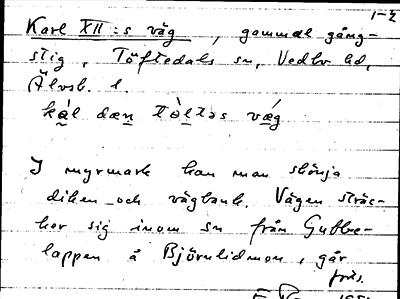 1-2
Karl XII:s väg, gammal gång-
stig, Töftedals sn, Vedbo hd,
Älvsb. l.
kál dæn tòltəs væ̀g
I myrmark kan man skönja
diken och vägbank. Vägen sträc-
ker sig inom sn från Gubbe-
lappen å Björnlidmon, går
förs.